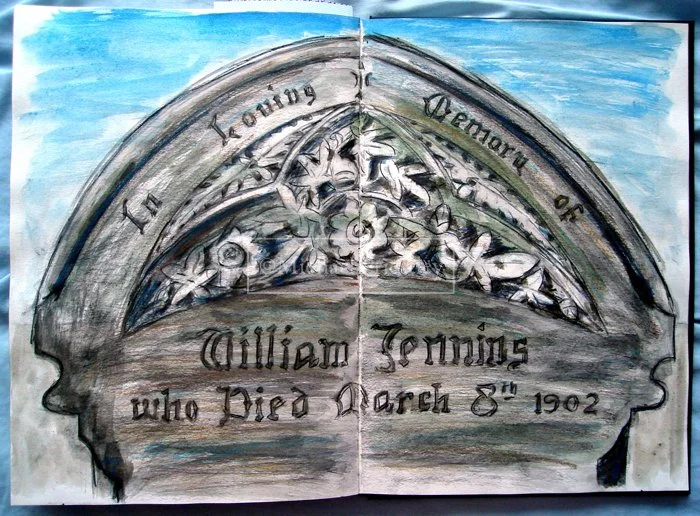 In Loving Memory of
William Jennins
who Died March 8th 1902